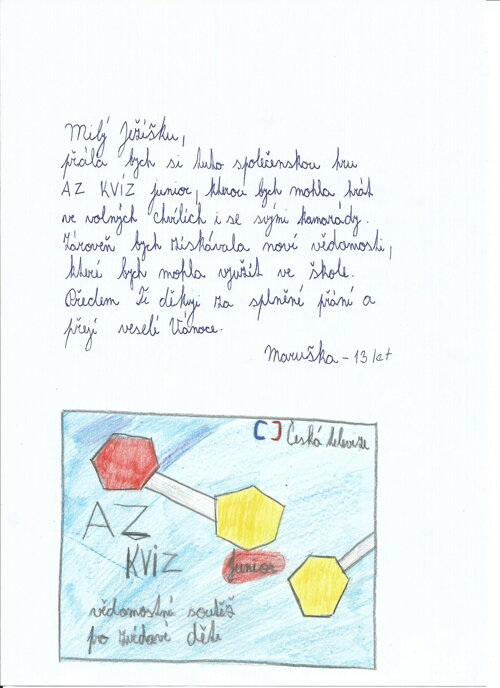 Milý Ježíšku,
přála bych si tuto společenskou hru
AZ KVÍZ junior, kterou bych mohla hrát
ve volných chvílích i se svými kamarády.
Zároveň bych získávala nové vědomosti,
které bych mohla využít ve škole.
Předem Ti děkuji za splnění přání a
přeji veselé Vánoce.
Maruška - 13 let
Česká televize
AZ
KVÍZ
junior
vědomostní soutěž
pro zvídavé děti